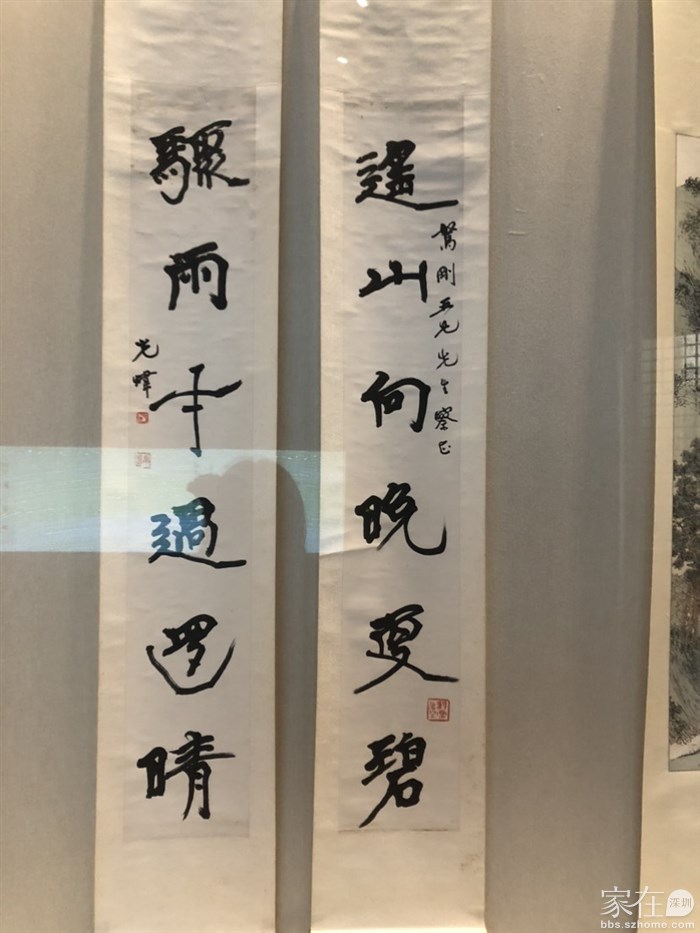 遙山向晚更碧
剛五兄先生察正
驟雨才過還晴
光煒
家在深圳
bbs.szhome.com